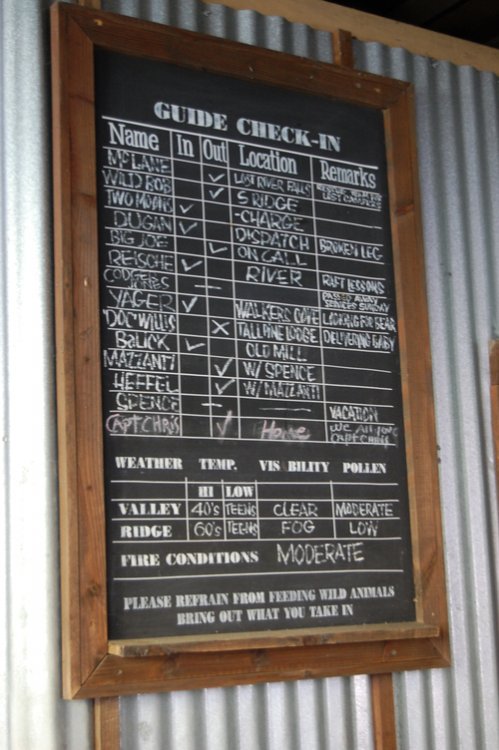 GUIDE CHECK-IN
Name In Out Location Remarks
McLANE ✓ LOST RIVER FALLS LOST CAMPERS
WILD BOB ✓ S RIDGE
TWO MOONS ✓ -CHARGE
DUGAN ✓ DISPATCH
BIG JOE ✓ ON CALL BROKEN LEG
REISCHE ✓ RIVER RAFT LESSONS
CODGER JONES — PASSED AWAY SERVICES SUNDAY
YAGER ✓ WALKERS COVE LOOKING FOR BEAR
'DOC' WILLIS X TALL PINE LODGE DELIVERING BABY
BALICK ✓ OLD MILL
MAZZANTI ✓ W/ SPENCE
HEFFEL ✓ W/ MAZZANTI
SPENCE — — VACATION
CAPT CHRIS ✓ Home WE ALL LOVE CAPT CHRIS
WEATHER TEMP. VIS BILITY POLLEN
HI LOW
VALLEY 40's TEENS CLEAR MODERATE
RIDGE 60's TEENS FOG LOW
FIRE CONDITIONS MODERATE
PLEASE REFRAIN FROM FEEDING WILD ANIMALS
BRING OUT WHAT YOU TAKE IN